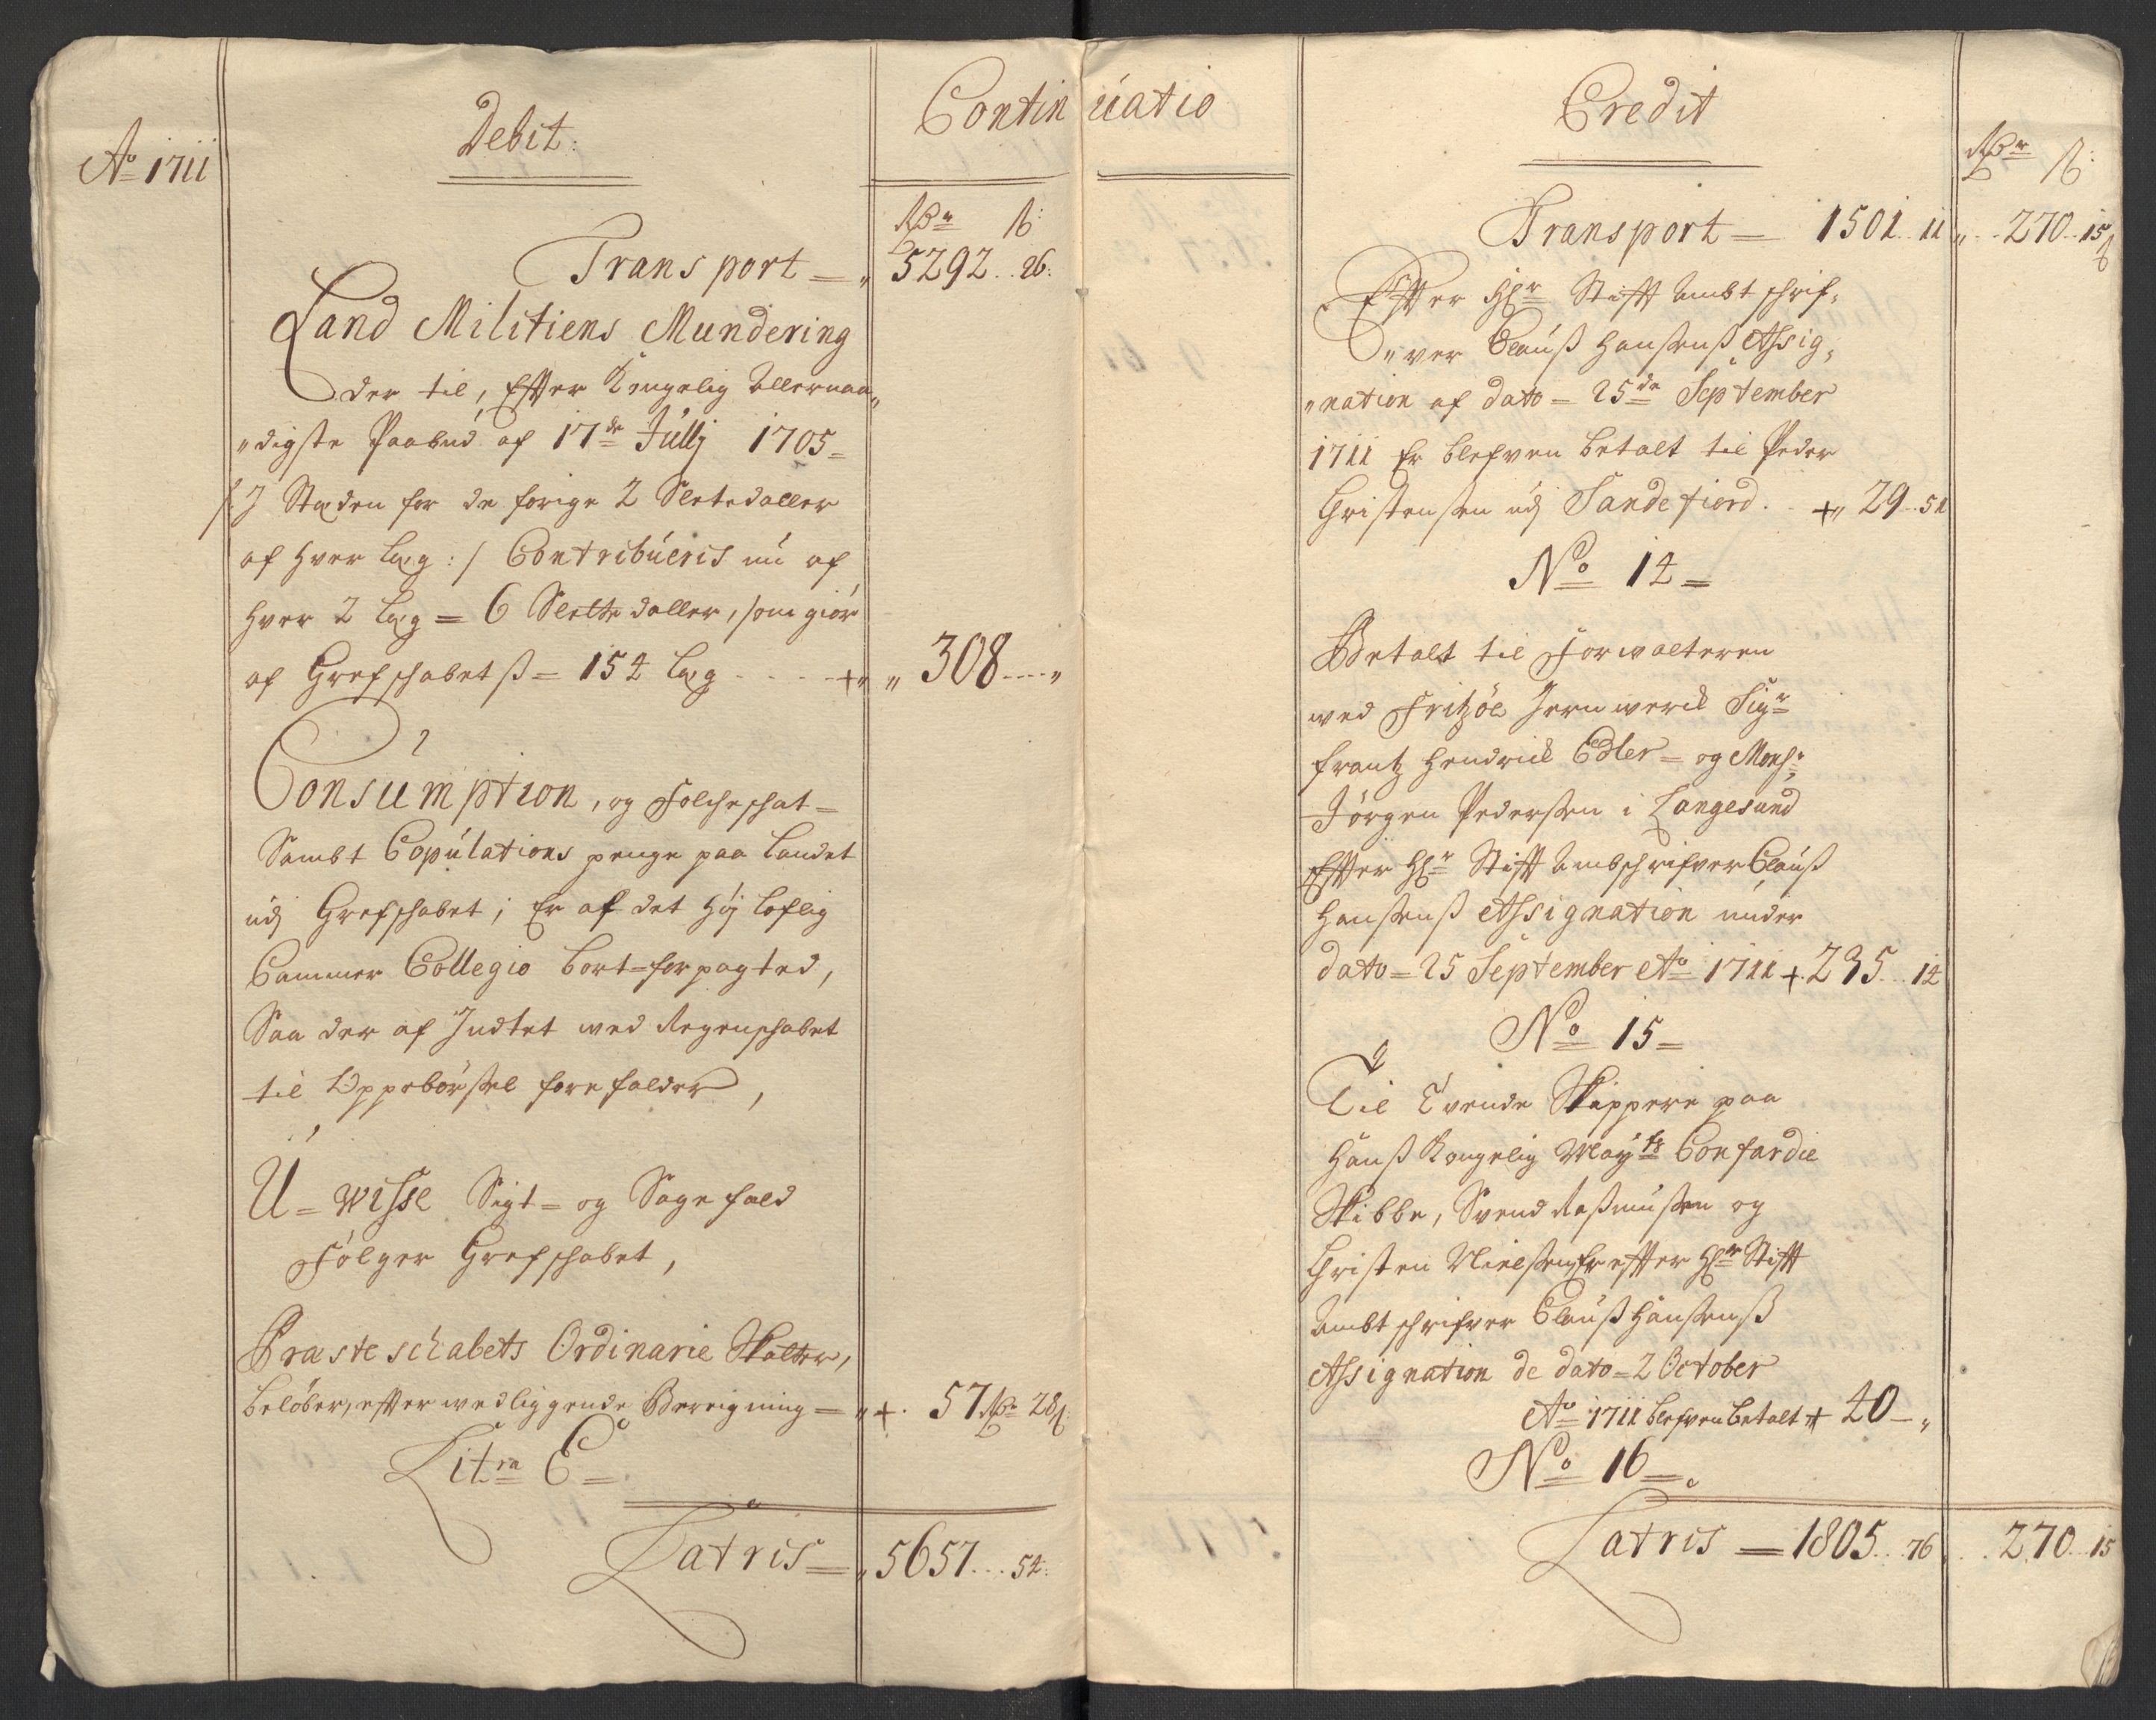 Ao 1711
Debit:
Continuatio
Rdr ß:
Transport = „ 5292.. 26:
Land Militiens Mundering
der til, Efter Kongelig Allernaa„
„digste Paabud af 17de Julij 1705=
/: J Staden for de forige 2 Slettedaller
af hver Læg :/ Contribueris nu af
hver 2 Læg = 6 Slette daller, som giør
af Grefschabetß = 154 Læg ..... +„ „ 308 ---- „
Consumption, og Folcheschat=
Sambt Copulations penge paa Landet
udj Grefschabet; Er af det Høj Loflig
Cammer Collegio bort=forpagted,
Saa der af Indtet ved Regenschabet
til Oppebørsel forefalder,
U=wisse Sigt= og Sagefald
Følger Grefschabet,
Præsteschabets Ordinarie Skatter,
beløber, efter wedliggende Beregning = „ +. 57 Rdr 28 ß:
Litra C=
Latris = „ 5657... 54:
Credit
Rdr ß:
Transport = 1501.. 11 „.. 270.. 15 ß
Efter Hr Stift Ambt schrif„
„ver Clauß Hanßenß Assig„
„nation af dato = 25de September
1711 Er blefven betalt til Peder
Christensen udj Sandefiord .. +„ 29.. 51
No 14=
Betalt til Forwalteren
wed Fritzøe Jernwerck Sigr
Frantz Hendrick Edler = og Monsr
Jørgen Pedersen i Langesund
Efter Hr Stift Ambschrifver Clauß
Hanßenß Assignation under
dato = 25 September Ao 1711 +. 235... 14
No 15=
Til Tvende Skippere paa
Hanß Kongelig Mayts Confardie
Skibbe, Svend Rasmußen og
Christen Nielsen Er efter Hr Stift
Ambtschrifver Clauß Hanßenß
Assignation de dato = 2 October
Ao 1711 blefven betalt + 40 — „
No 16=
Latris = 1805... 76 ... 270... 15